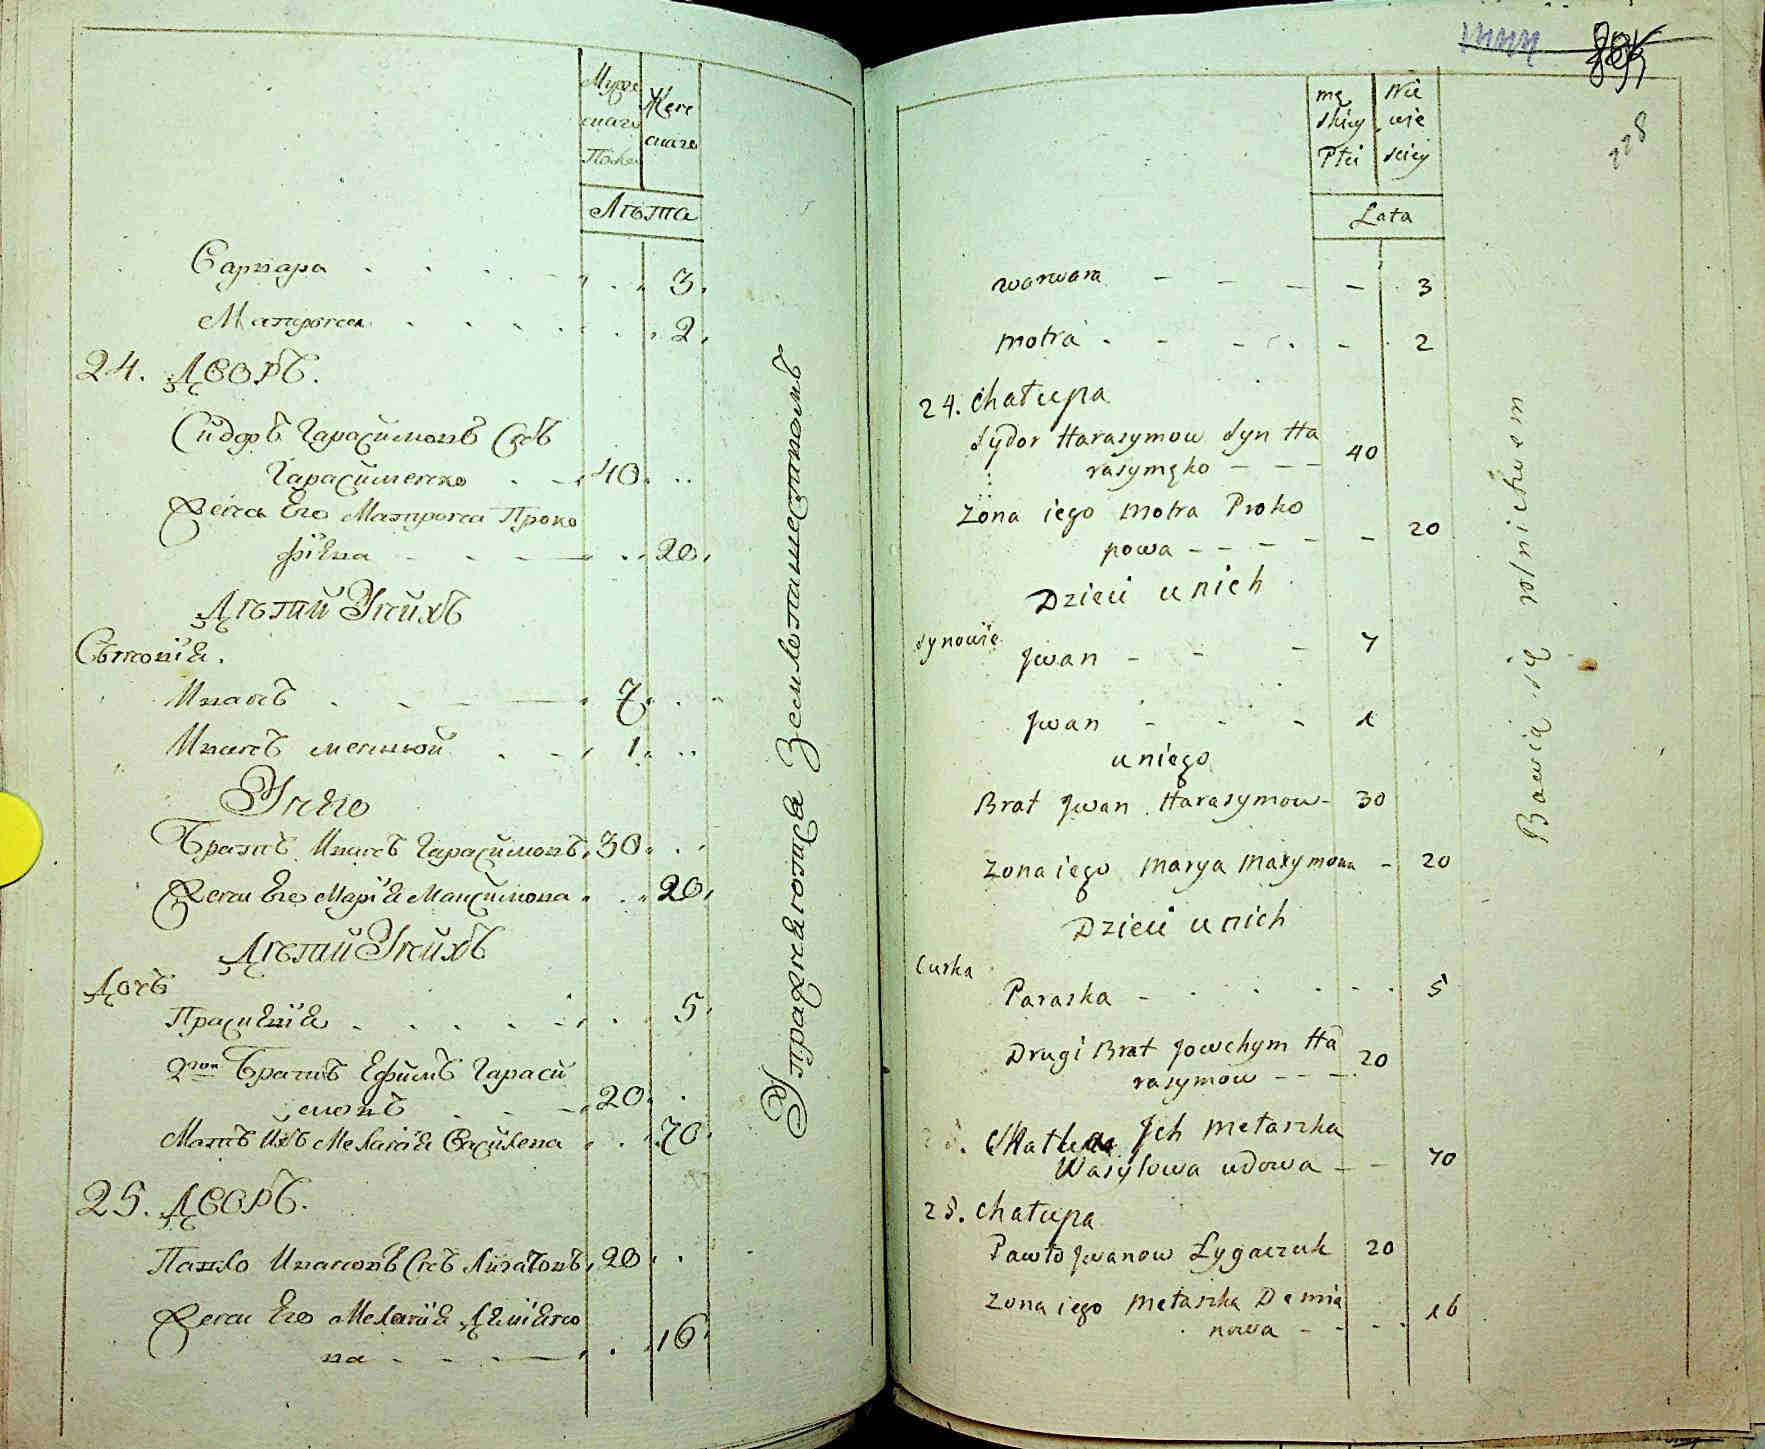 Мужескаго Полу
Женскаго
Лѣта
Варвара 3
Матрона 2
24. Дворъ.
Сидоръ Гарасимовъ Снъ
Гарасименко 40
Жена Его Матрона Проко
фіева 20
Дѣтий Унихъ
Сыновія.
Иванъ 7
Иванъ меншой 1
Унего
Братъ Иванъ Гарасимовъ 30
Жена Его Марія Максимова 20
Дѣтий Унихъ
Дочъ
Праскевія 5
2гой Братъ Ефимъ Гараси
мовъ 20
Мать Ихъ Меланія Василева 70
25. Дворъ.
Павло Ивановъ Снъ 20
Жена Его Меланія Деміяно
ва 16
Упражняются Землепашествомъ
228
mę skiey Płci
Nie wie sciey
Lata
warwara 3
motra 2
24. Chałupa
Sydor Harasymow Syn Ha
rasymęko 40
Zona iego Motra Proko
powa 20
Dzieci u nich
Synowie
Jwan 7
Jwan 1
u niego
Brat Jwan Harasymow 30
Zona iego Marya Maxymowa 20
Dzieci u nich
Curka
Paraska 5
Drugi Brat Jowchym Ha
rasymow 20
Matka Jch Mełaszka
Wasylowa udowa 70
25. Chałupa
Pawło Jwanow Łygaczuk 20
Zona iego Mełaszka Demia
nowa 16
Bawią się rolnictwem